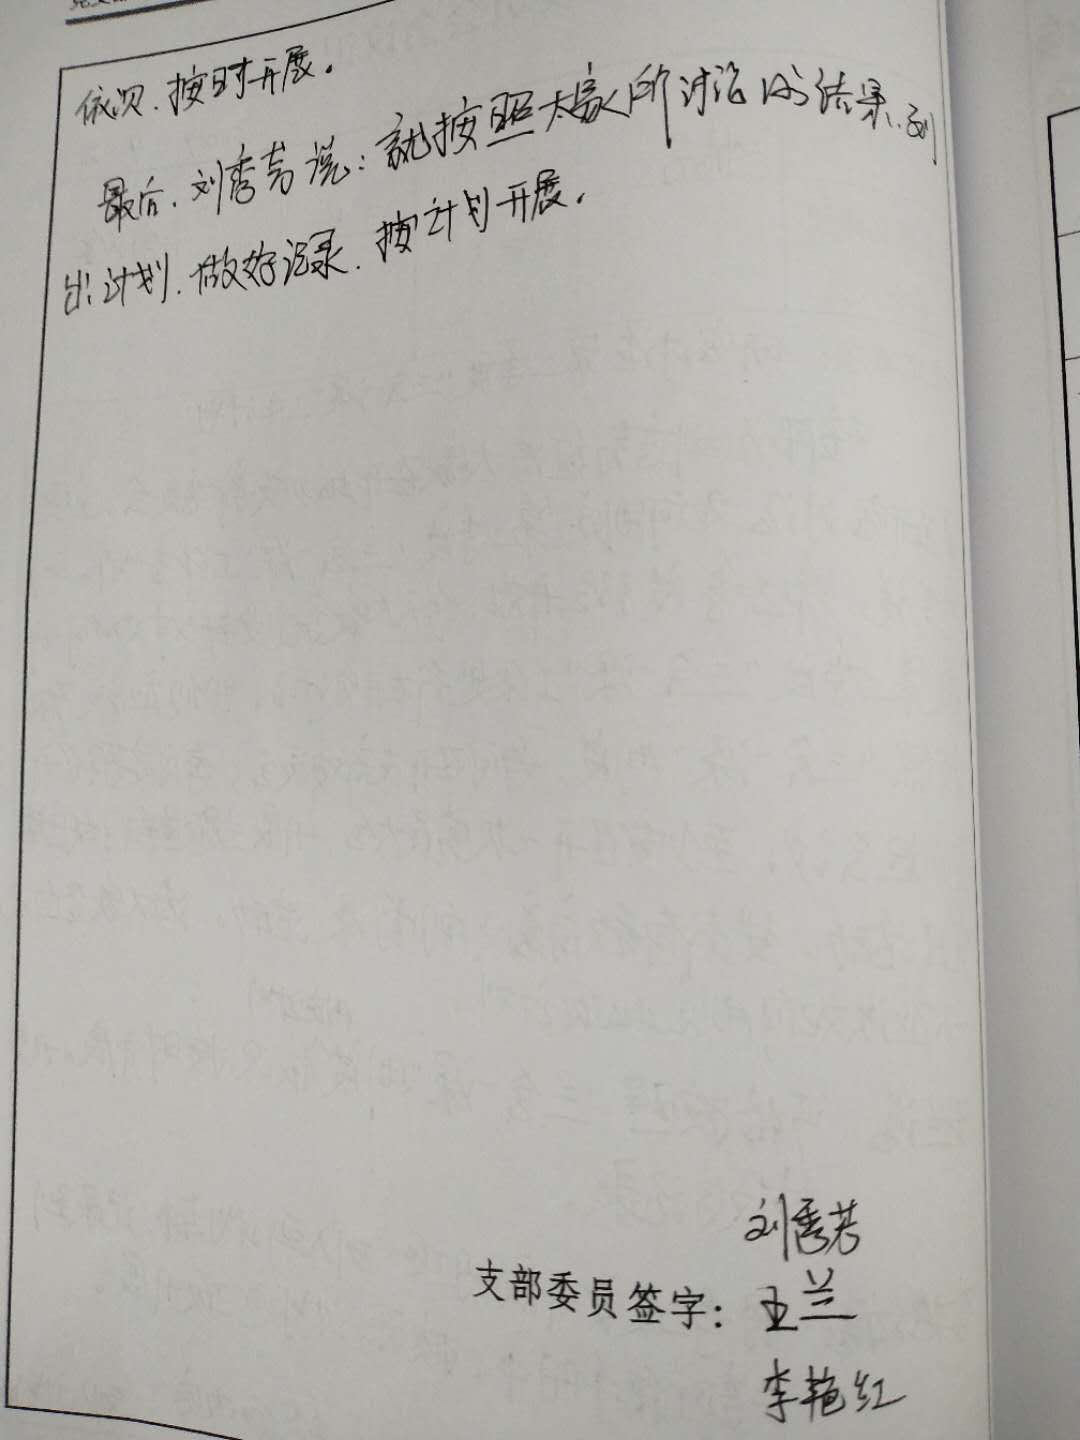 依次、按时开展。
最后，刘秀芳说：就按照大家所讨论的结果，列
出计划，做好记录，按计划开展。
刘秀芳
支部委员签字：王兰
李艳红